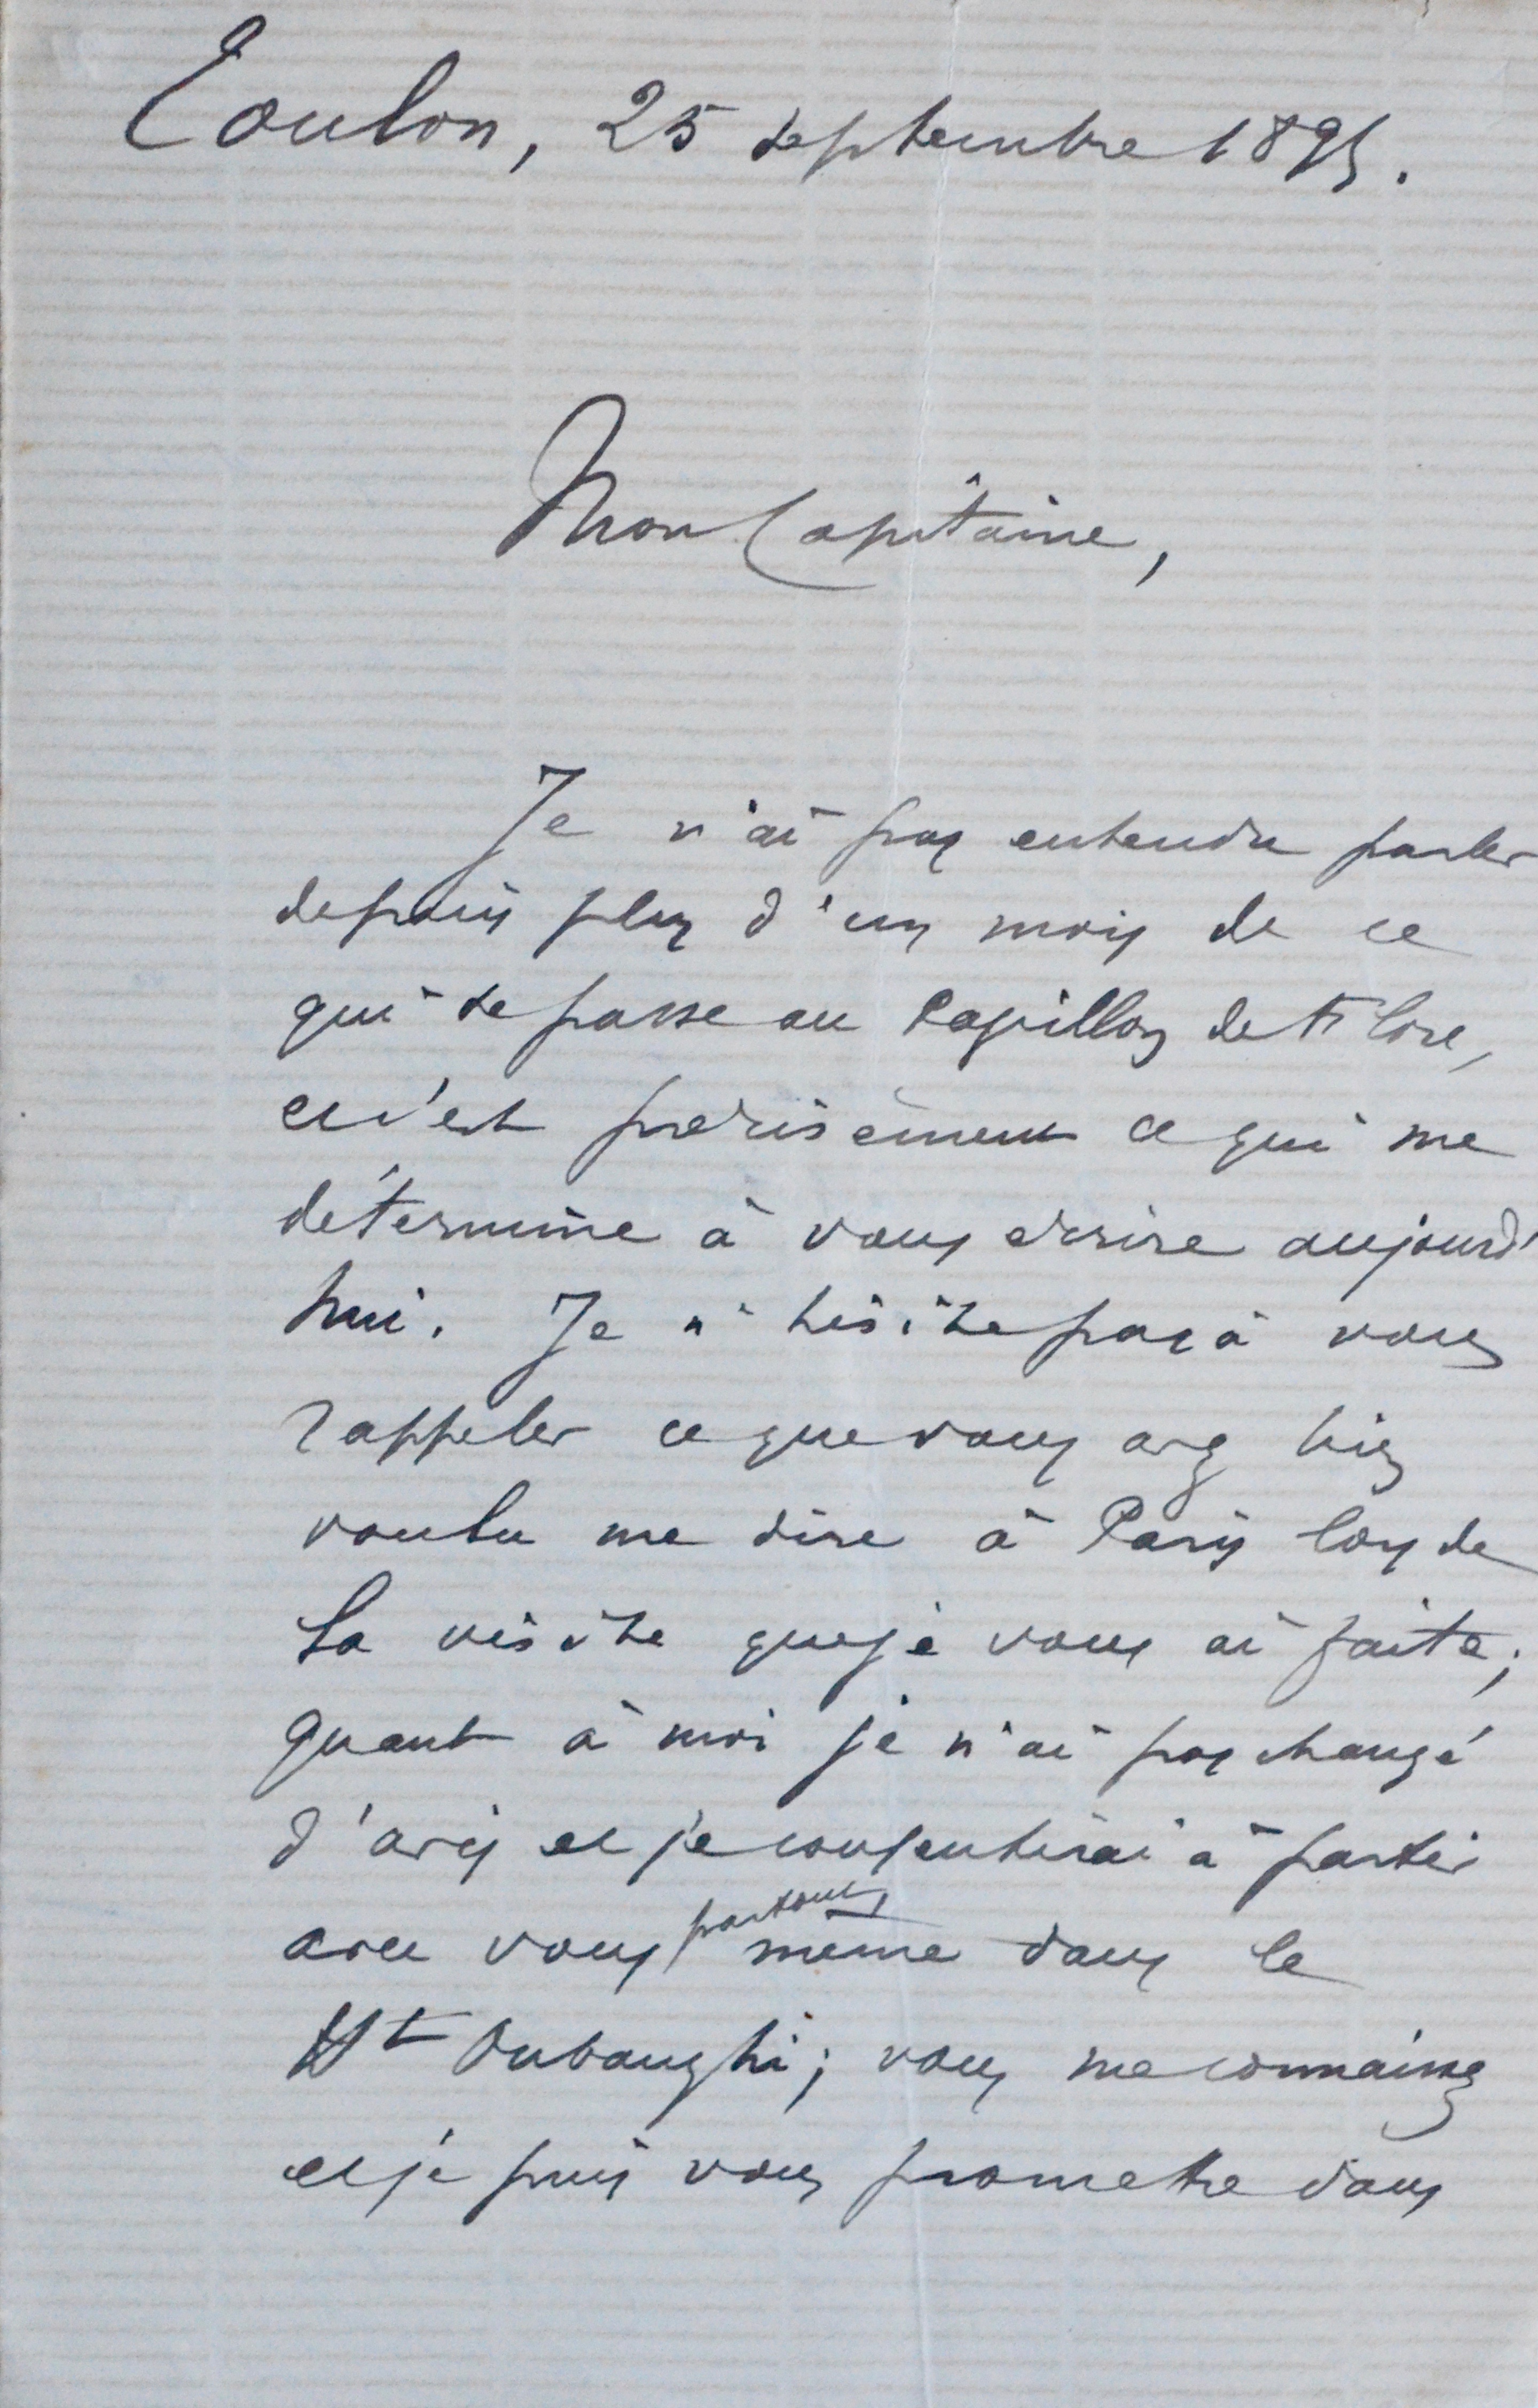 Toulon, 25 septembre 1895.
Mon Capitaine,
Je n'ai pas entendu parler
depuis plus d'un mois de ce
qui se passe au Pavillon de Flore,
et c'est précisément ce qui me
détermine à vous écrire aujourd'
hui. Je n'hésite pas à vous
rappeler ce que vous avez bien
voulu me dire à Paris lors de
la visite que je vous ai faite ;
quant à moi je n'ai pas changé
d'avis et je consentirai à partir
avec vous partout, même dans le
Ht Oubanghi ; vous me connaissez
et je puis vous promettre dans